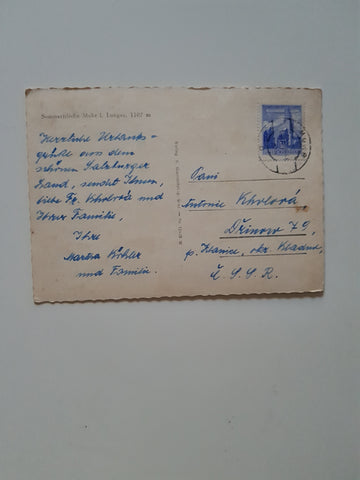 Sommerfrische Muhr i. Lungau, 1107 m
Herrliche Urlaubs-
grüße aus dem
schönen Salzburger
Land, sendet Ihnen,
liebe Fr. Kholová und
Ihrer Familie,
Ihre
Martha Köhler
und Familie.
Paní
Antonie Kholová
Dřínov 79,
p. Klanice, okr. Kladno,
Č.S.S.R.